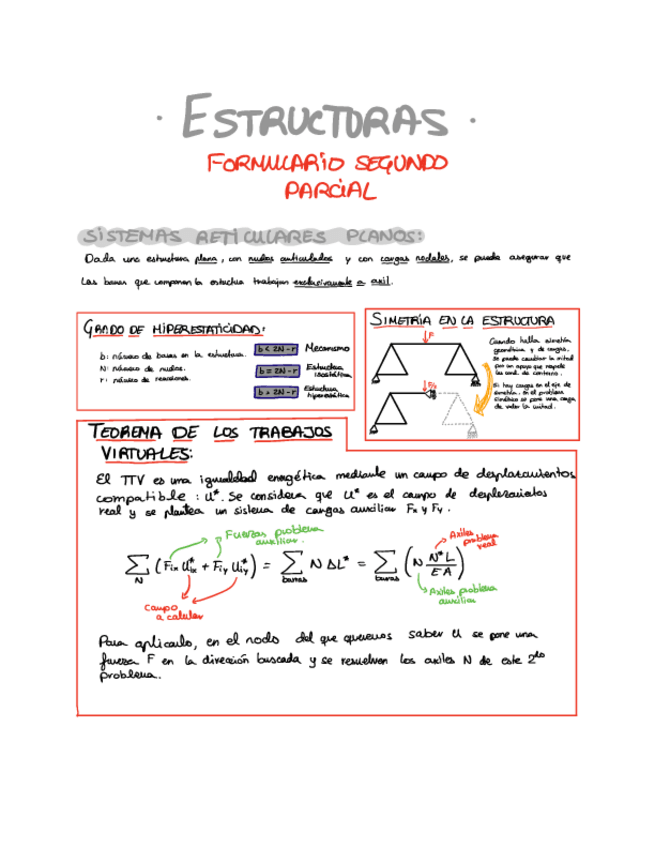 · ESTRUCTURAS ·
FORMULARIO SEGUNDO
PARCIAL
SISTEMAS RETICULARES PLANOS:
Dada una estructura plana, con nudos articulados y con cargas nodales, se puede asegurar que
las barras que componen la estructura trabajan exclusivamente a axil.
GRADO DE HIPERESTATICIDAD:
b: número de barras en la estructura.
N: número de nudos.
r: número de reacciones.
b < 2N - r Mecanismo
b = 2N - r Estructura
isostática
b > 2N - r Estructura
hiperestática
SIMETRÍA EN LA ESTRUCTURA
F
F/2
Cuando halla simetría
geométrica y de cargas,
se puede cambiar la mitad
por un apoyo que respete
las cond. de contorno.
Si hay cargas en el eje de
simetría, en el problema
simétrico se pone una carga
de valor la mitad.
TEOREMA DE LOS TRABAJOS
VIRTUALES:
El TTV es una igualdad energética mediante un campo de desplazamientos
compatible: u*. Se considera que u* es el campo de desplazamientos
real y se plantea un sistema de cargas auxiliar Fx y Fy.
Fuerzas problema
auxiliar.
Axiles
problema
real
∑_N (Fix u*ix + Fiy u*iy) = ∑_barras N ΔL* = ∑_barras (N N*L/EA)
Axiles problema
auxiliar
Campo
a calcular
Para aplicarlo, en el nodo del que queremos saber u se pone una
fuerza F en la dirección buscada y se resuelven los axiles N de este 2do
problema.